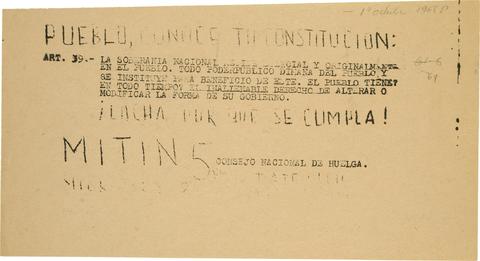 1º octubre 1968
PUEBLO, CONOCE TU CONSTITUCION:
ART. 39.- LA SOBERANIA NACIONAL Y ORIGINALMENTE
EN EL PUEBLO. TODO PODERPUBLICO DIMANA DEL PUEBLO Y
SE INSTITUYE PARA BENEFICIO DE ESTE. EL PUEBLO TIENE?
EN TODO TIEMPO? EL INALIENABLE DERECHO DE ALTERAR O
MODIFICAR LA FORMA DE SU GOBIERNO.
¡LUCHA POR QUE SE CUMPLA!
MITIN 5
CONSEJO NACIONAL DE HUELGA.